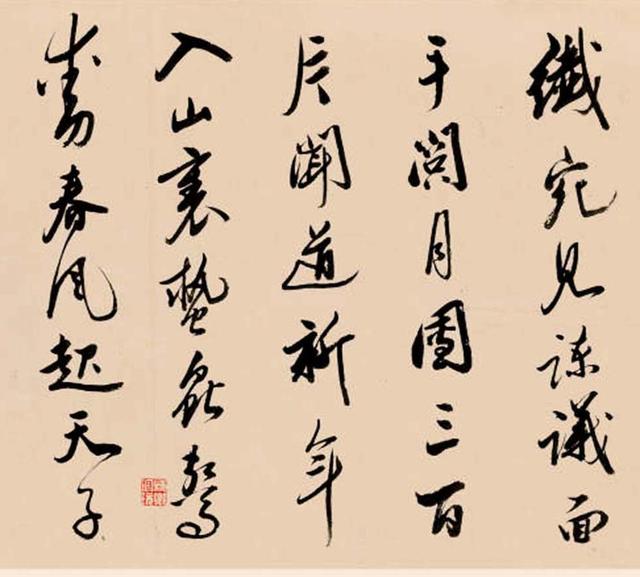 緘宛見諫議面
手閱月團三百
片聞道新年
入山裏蟄蟲驚
動春風起天子